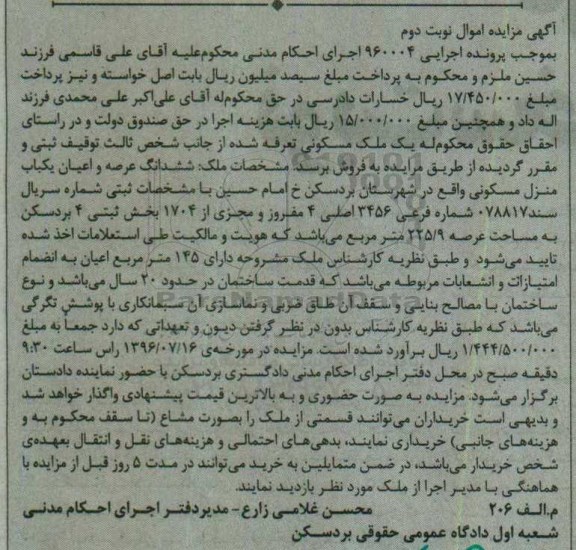 آگهی مزایده اموال نوبت دوم
بموجب پرونده اجرایی ۹۶۰۰۰۴ اجرای احکام مدنی محکوم‌علیه آقای علی قاسمی فرزند
حسین ملزم و محکوم به پرداخت مبلغ سیصد میلیون ریال بابت اصل خواسته و نیز پرداخت
مبلغ ۱۷/۴۵۰/۰۰۰ ریال خسارات دادرسی در حق محکوم‌له آقای علی‌اکبر علی محمدی فرزند
اله داد و همچنین مبلغ ۱۵/۰۰۰/۰۰۰ ریال بابت هزینه اجرا در حق صندوق دولت و در راستای
احقاق حقوق محکوم‌له یک ملک مسکونی تعرفه شده از جانب شخص ثالث توقیف ثبتی و
مقرر گردیده از طریق مزایده به فروش برسد: مشخصات ملک: ششدانگ عرصه و اعیان یکباب
منزل مسکونی واقع در شهرستان بردسکن خ امام حسین با مشخصات ثبتی شماره سریال
سند۰۷۸۸۱۷ شماره فرعی ۳۴۵۶ اصلی ۴ مفروز و مجزی از ۱۷۰۴ بخش ثبتی ۴ بردسکن
به مساحت عرصه ۲۲۵/۹ متر مربع می‌باشد که هویت و مالکیت طی استعلامات اخذ شده
تایید می‌شود و طبق نظریه کارشناس ملک مشروحه دارای ۱۴۵ متر مربع اعیان به انضمام
امتیازات و انشعابات مربوطه می‌باشد که قدمت ساختمان در حدود ۲۰ سال می‌باشد و نوع
ساختمان با مصالح بنایی و سقف آن طاق ضربی و نماسازی آن سیمانکاری با پوشش تگرگی
می‌باشد که طبق نظریه کارشناس بدون در نظر گرفتن دیون و تعهداتی که دارد جمعاً به مبلغ
۱/۴۴۴/۵۰۰/۰۰۰ ریال برآورد شده است. مزایده در مورخه‌ی ۱۳۹۶/۰۷/۱۶ راس ساعت ۹:۳۰
دقیقه صبح در محل دفتر اجرای احکام مدنی دادگستری بردسکن با حضور نماینده دادستان
برگزار می‌شود. مزایده به صورت حضوری و به بالاترین قیمت پیشنهادی واگذار خواهد شد
و بدیهی است خریداران می‌توانند قسمتی از ملک را بصورت مشاع (تا سقف محکوم به و
هزینه‌های جانبی) خریداری نمایند، بدهی‌های احتمالی و هزینه‌های نقل و انتقال بعهده‌ی
شخص خریدار می‌باشد، در ضمن متمایلین به خرید می‌توانند در مدت ۵ روز قبل از مزایده با
هماهنگی با مدیر اجرا از ملک مورد نظر بازدید نمایند.
م.الف ۲۰۶ محسن غلامی زارع- مدیردفتر اجرای احکام مدنی
شعبه اول دادگاه عمومی حقوقی بردسکن